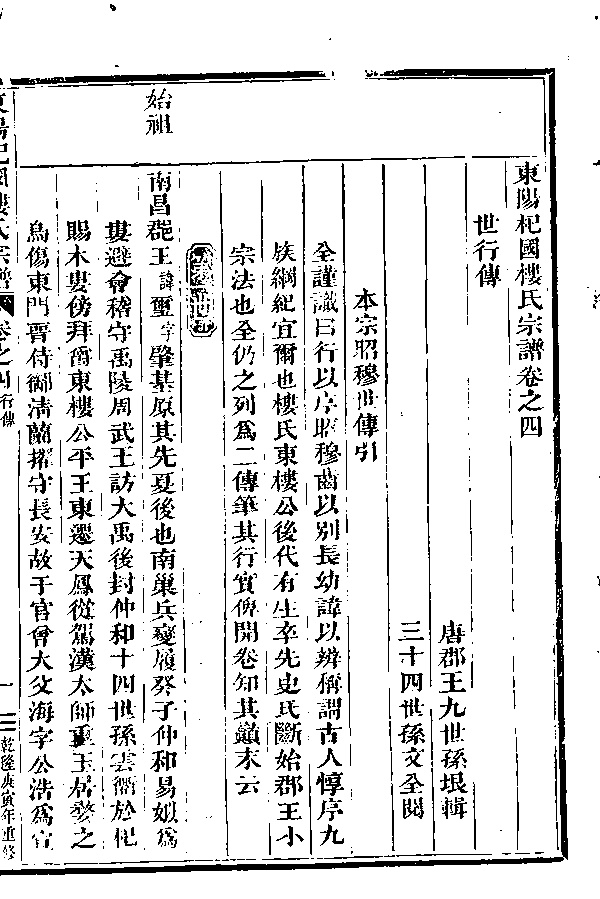 東陽杞國樓氏宗譜卷之四
世行傳
唐郡王九世孫垠輯
三十四世孫文全閱
本宗昭穆世傳引
全謹識曰行以序昭穆齒以別長幼諱以辨稱謂古人惇序九
族綱紀宜爾也樓氏東樓公後代有生卒先史氏斷始郡王小
宗法也全仍之列為二傳筆其行實俾開卷知其巔末云
始祖
南昌郡王諱璽字肇基原其先夏後也南巢兵變履癸子仲和易姒為
婁避會稽守禹陵周武王訪大禹後封仲和十四世孫雲衢於杞
賜木婁傍拜爵東樓公平王東遷天鳳從駕漢太師重玉居婺之
烏傷東門晉侍御清蘭擢守長安故于官曾大父海字公浩為官
東陽杞國樓氏宗譜
卷之四
行傳
一
乾隆庚寅年重修